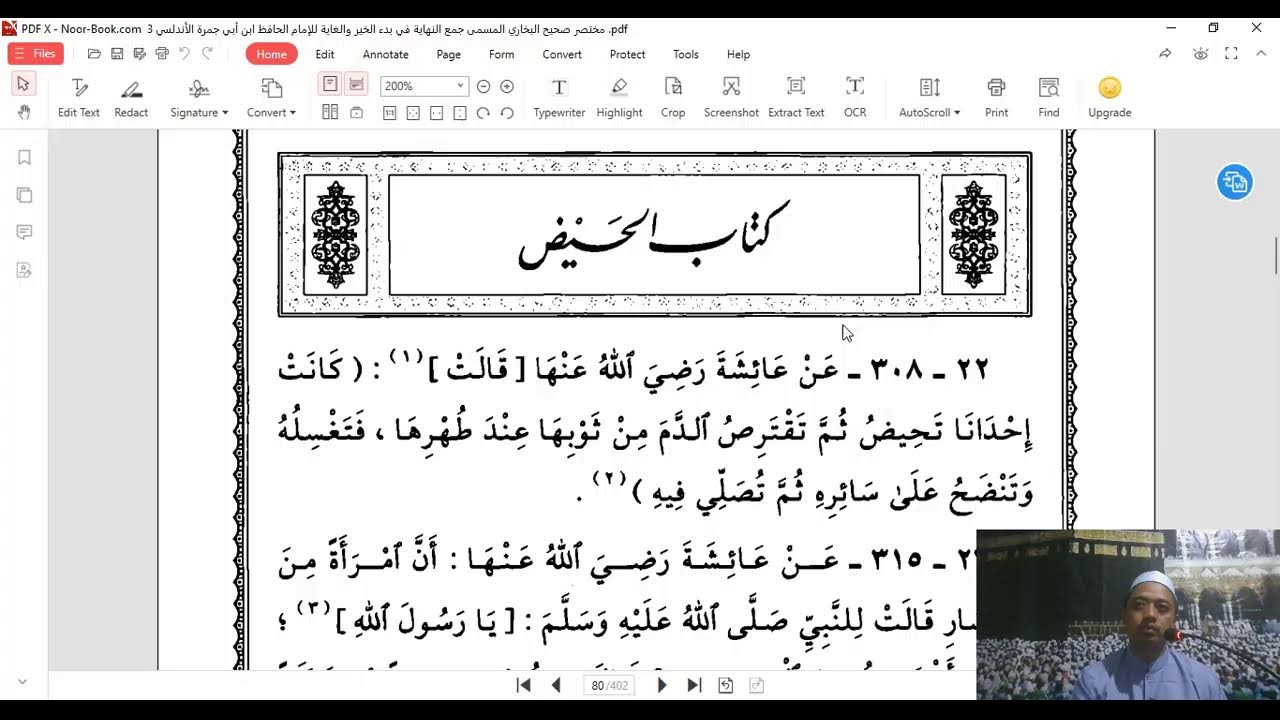 PDF X - Noor-Book.com مختصر صحيح البخاري المسمى جمع النهاية في بدء الخير والغاية للإمام الحافظ ابن أبي جمرة الأندلسي 3 .pdf
Files
Home Edit Annotate Page Form Convert Protect Tools Help
200%
Edit Text Redact Signature Convert Typewriter Highlight Crop Screenshot Extract Text OCR AutoScroll Print Find Upgrade
كتاب الحَيْض
٢٢ ـ ٣٠٨ ـ عَنْ عَائِشَةَ رَضِيَ ٱللهُ عَنْهَا [ قَالَتْ ] (١) : ( كَانَتْ
إِحْدَانَا تَحِيضُ ثُمَّ تَقْتَرِصُ ٱلدَّمَ مِنْ ثَوْبِهَا عِنْدَ طُهْرِهَا ، فَتَغْسِلُهُ
وَتَنْضَحُ عَلَىٰ سَائِرِهِ ثُمَّ تُصَلِّي فِيهِ ) (٢) .
ـ ٣١٥ ـ عَنْ عَائِشَةَ رَضِيَ ٱللهُ عَنْهَا : أَنَّ ٱمْرَأَةً مِنَ
قَالَتْ لِلنَّبِيِّ صَلَّى ٱللهُ عَلَيْهِ وَسَلَّمَ : [ يَا رَسُولَ ٱللهِ ] (٣) ؛
80 /402